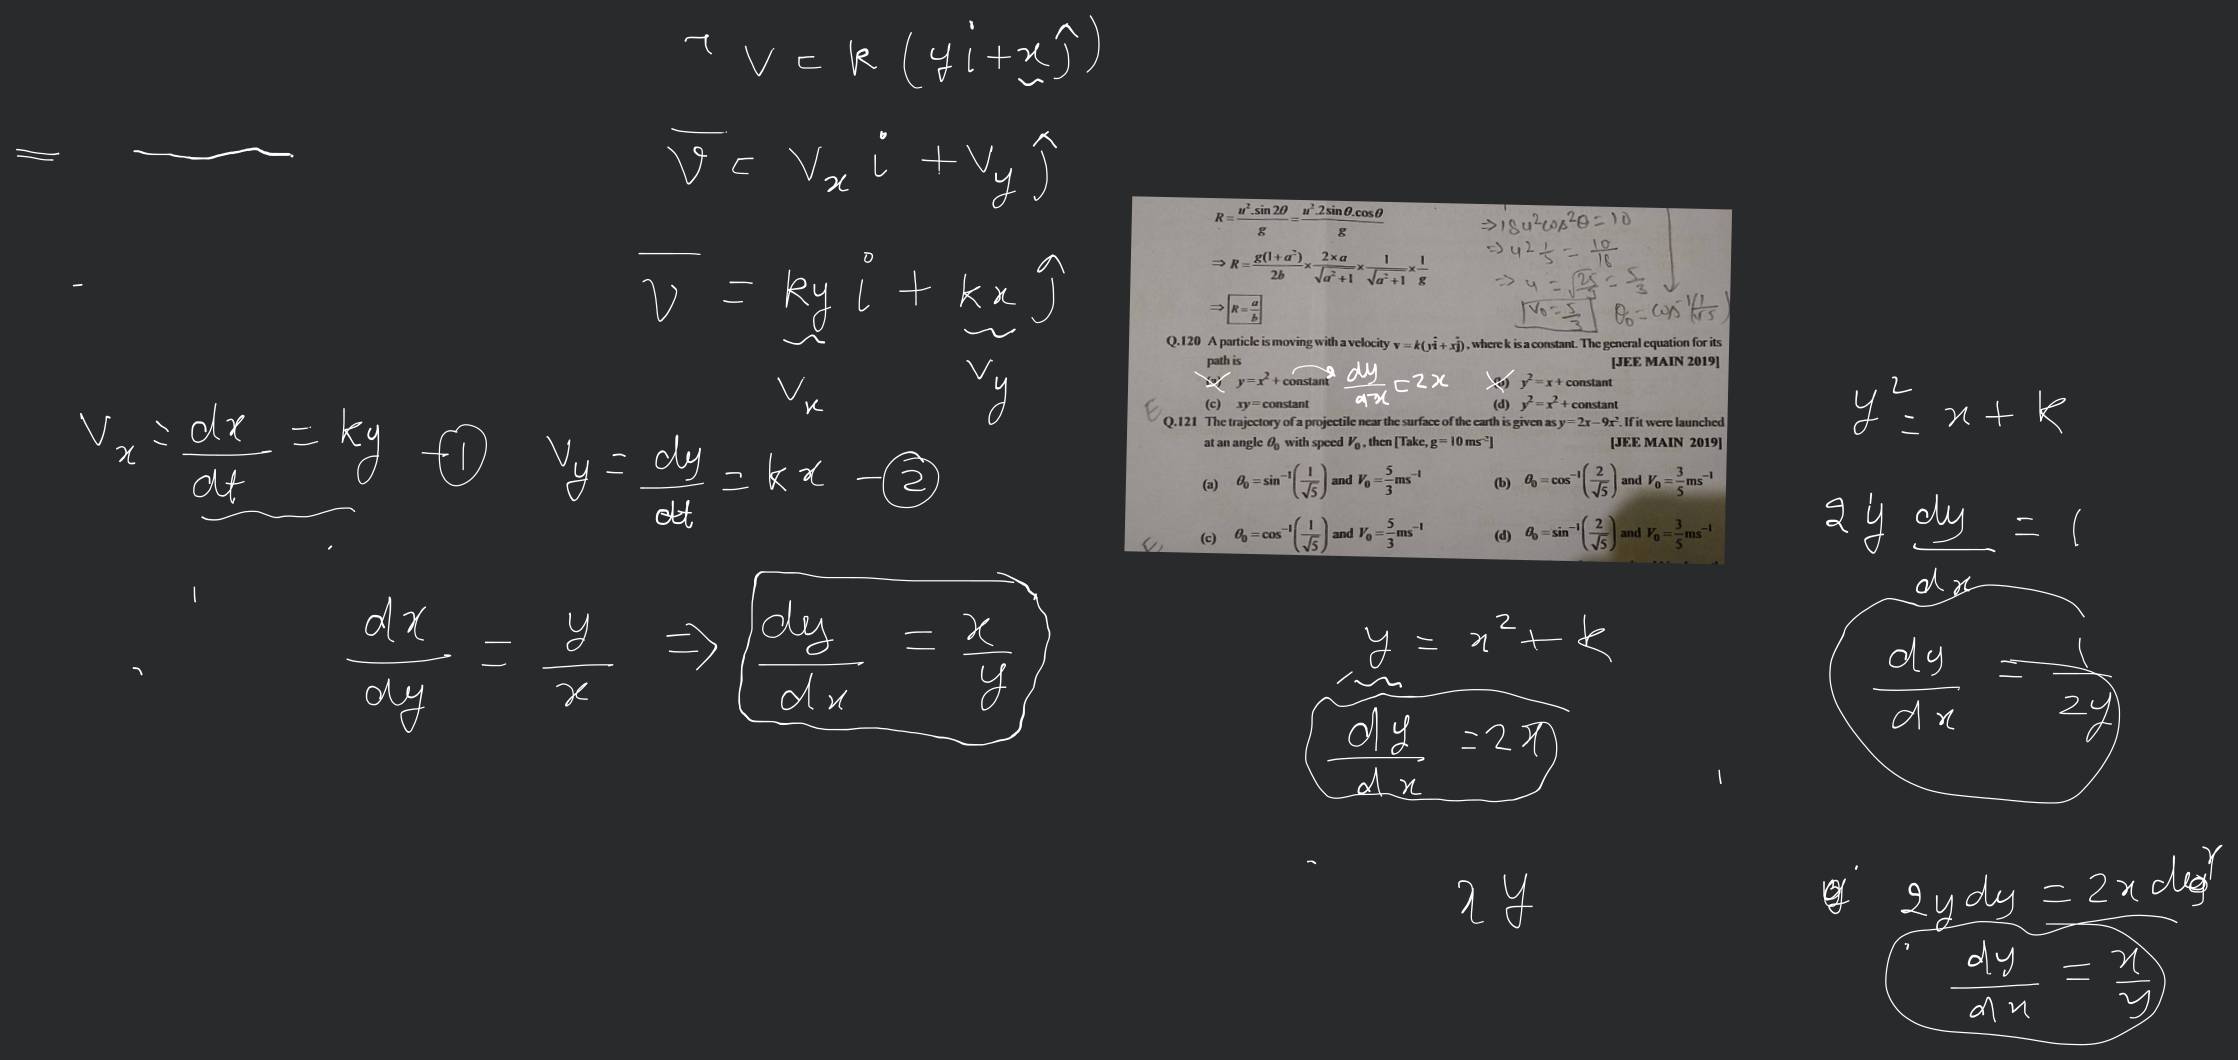 v = k (yi + xĵ)
v̅ = Vₓ i + V_y ĵ
v̅ = ky i + kx ĵ
Vₓ
V_y
Vₓ = dx/dt = ky - ①
V_y = dy/dt = kx - ②
dx/dy = y/x ⇒ dy/dx = x/y
R = u².sin 2θ/g = u².2sin θ.cos θ/g
⇒ R = g(1+a²)/2b × 2×a/√a²+1 × 1/√a²+1 × 1/g
⇒ R = a/b
⇒ 18u²cos²θ = 10
⇒ u² 1/5 = 10/18
⇒ u = √25/9 = 5/3
V₀ = 5/3 θ₀ = cos⁻¹(1/√5)
Q.120 A particle is moving with a velocity v = k(yî + xĵ), where k is a constant. The general equation for its
path is [JEE MAIN 2019]
(a) y = x² + constant dy/dx = 2x (b) y² = x + constant
(c) xy = constant (d) y² = x² + constant
Q.121 The trajectory of a projectile near the surface of the earth is given as y = 2x – 9x². If it were launched
at an angle θ₀ with speed V₀, then [Take, g = 10 ms⁻²] [JEE MAIN 2019]
(a) θ₀ = sin⁻¹(1/√5) and V₀ = 5/3 ms⁻¹ (b) θ₀ = cos⁻¹(2/√5) and V₀ = 3/5 ms⁻¹
(c) θ₀ = cos⁻¹(1/√5) and V₀ = 5/3 ms⁻¹ (d) θ₀ = sin⁻¹(2/√5) and V₀ = 3/5 ms⁻¹
y = x² + k
dy/dx = 2x
xy
y² = x + k
2y dy/dx = 1
dy/dx = 1/2y
2y dy = 2x dx
dy/dx = x/y